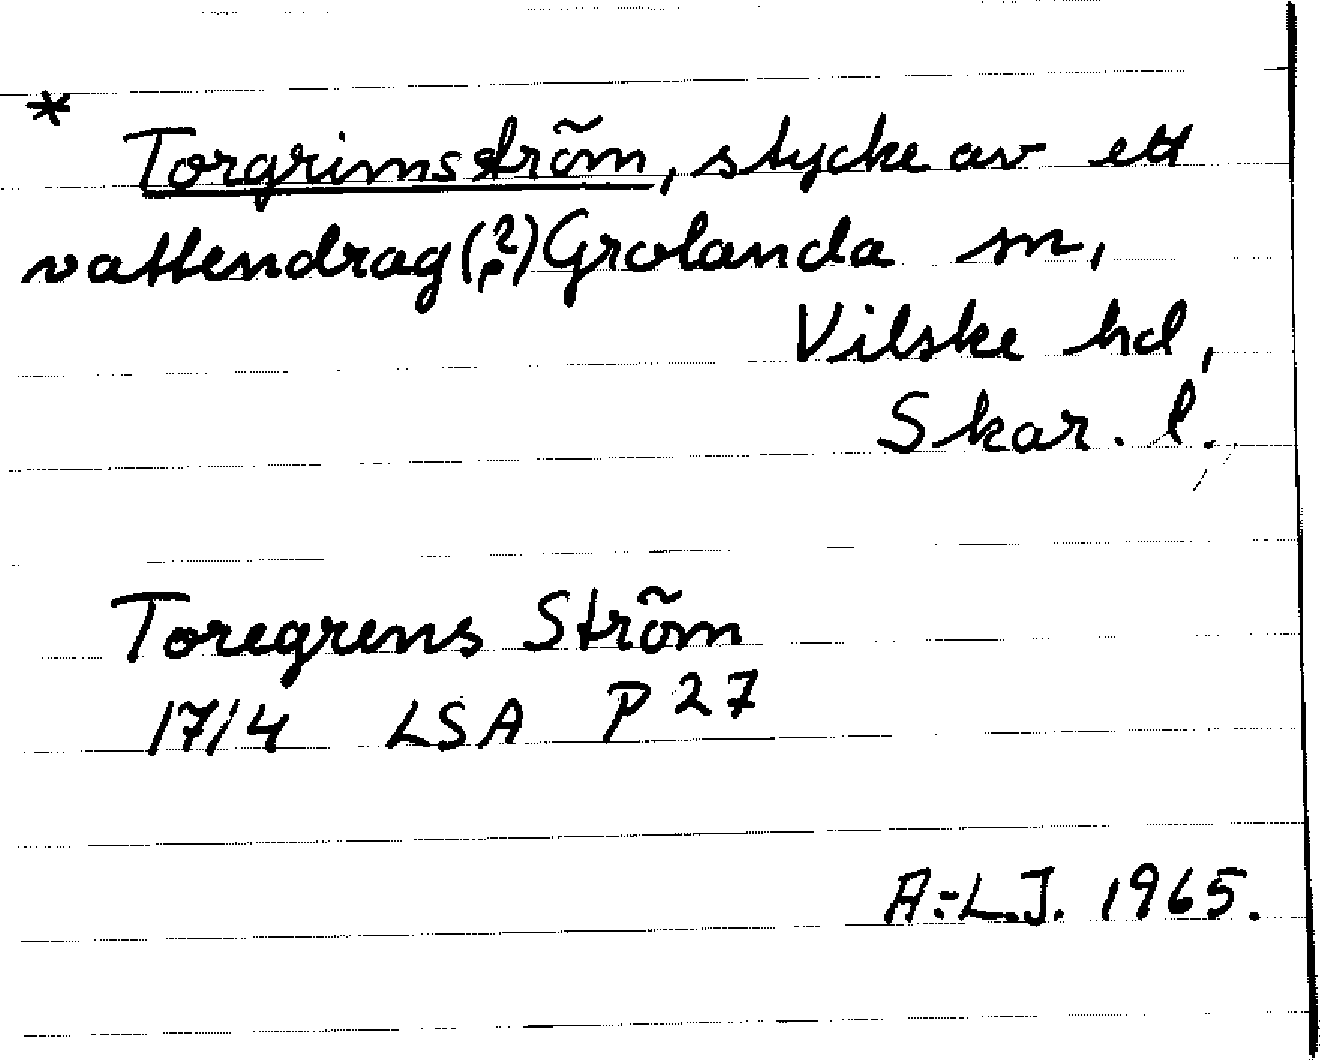 *
Torgrimsström, stycke av ett
vattendrag(?) Grolanda sn,
Vilske hd,
Skar. l.
Toregrens Ström
1714 LSA P 27
A.-L.J. 1965.